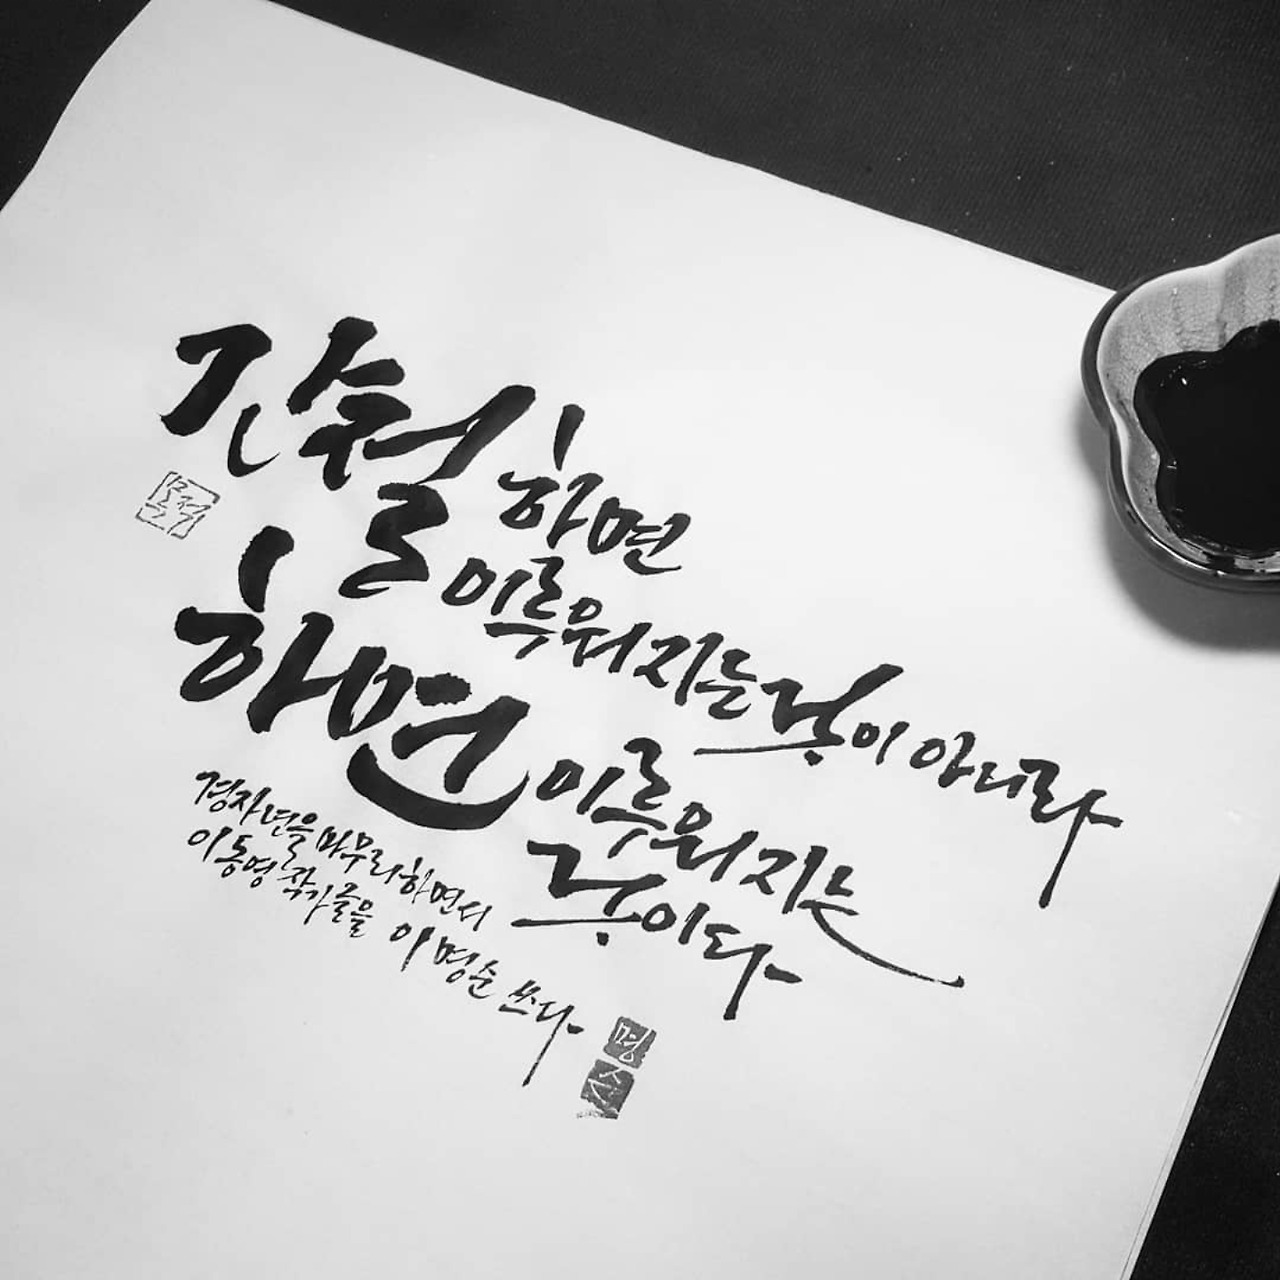 간절하면
이루워지는 것이 아니라
하면 이루워지는
것이다
경자년을 마무리하면서
이동영 작가글을 이명순 쓰다
명순